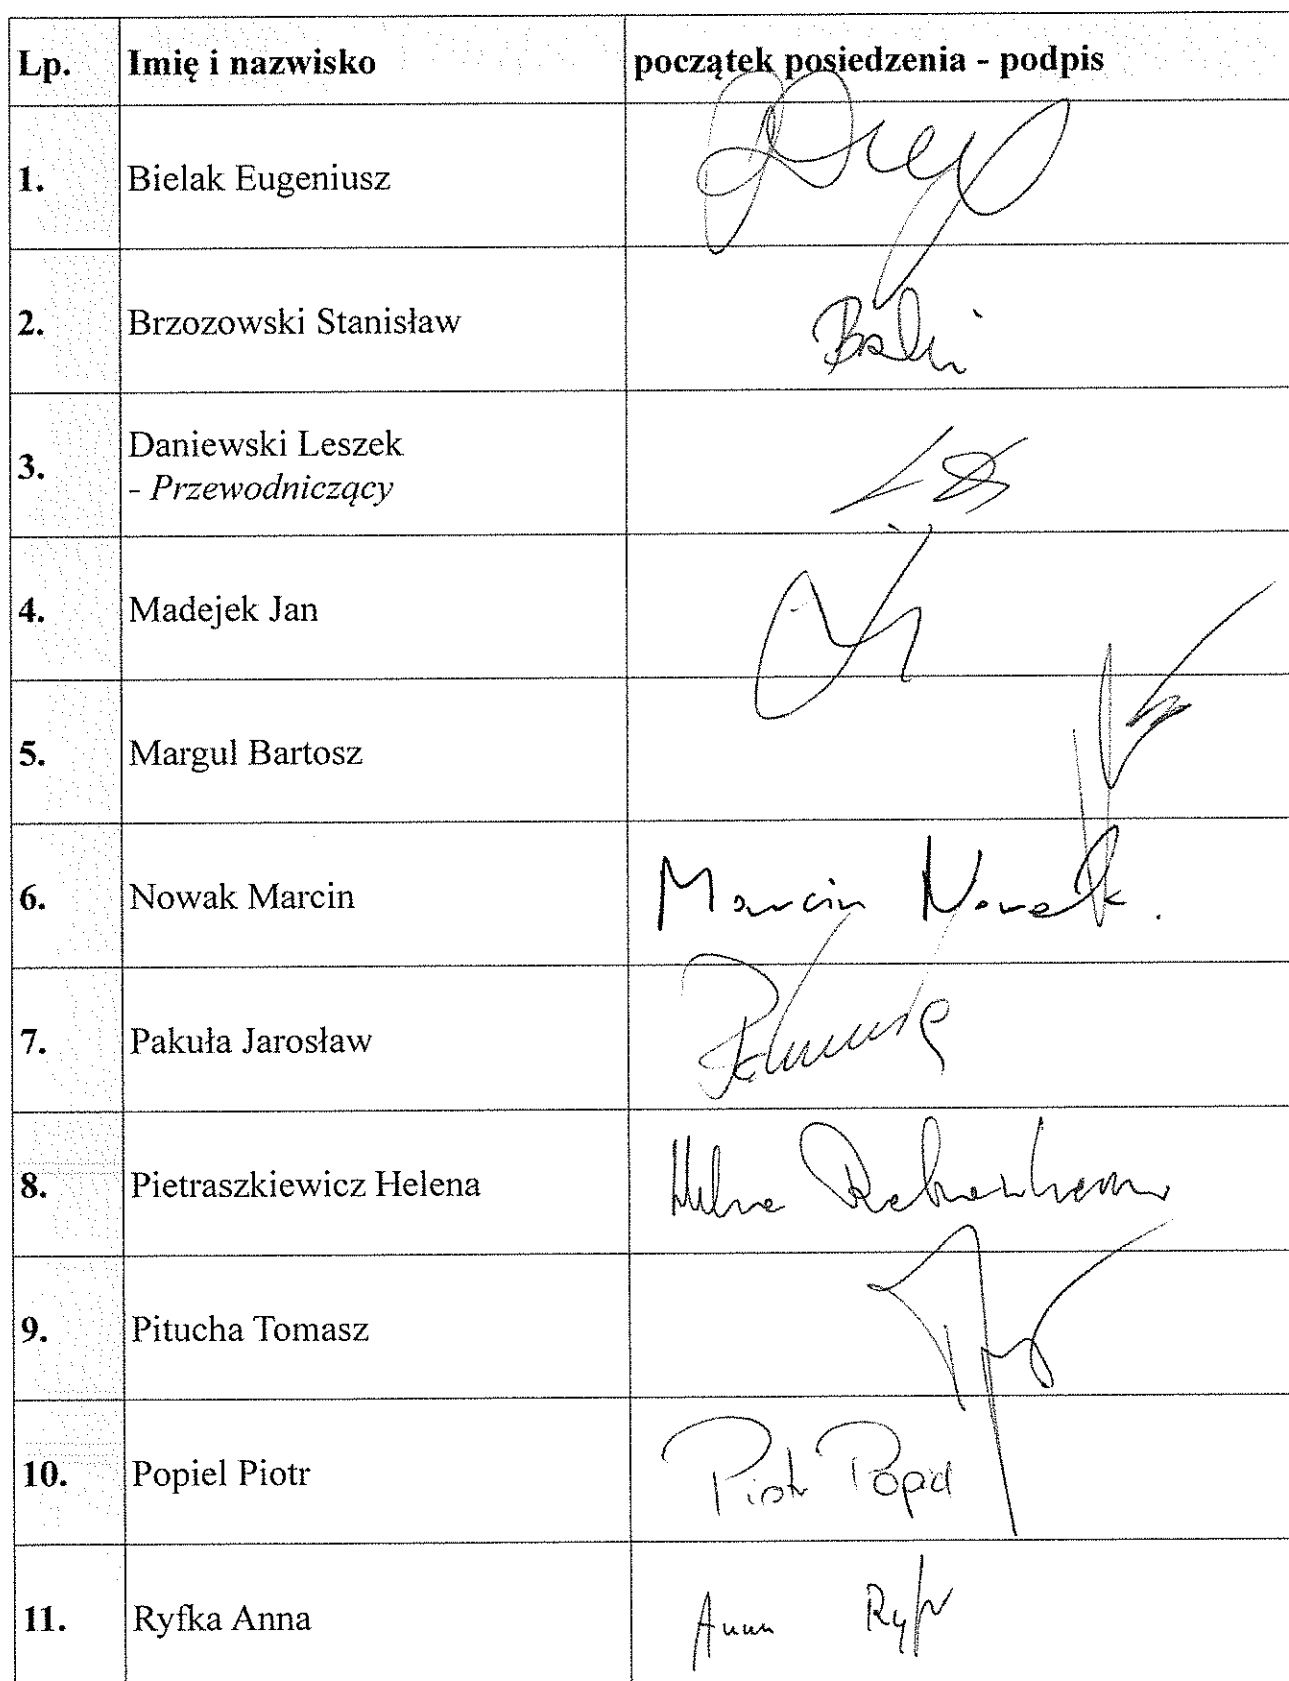 Lp. Imię i nazwisko początek posiedzenia - podpis
1. Bielak Eugeniusz
2. Brzozowski Stanisław
3. Daniewski Leszek
- Przewodniczący
4. Madejek Jan
5. Margul Bartosz
6. Nowak Marcin Marcin Nowak.
7. Pakuła Jarosław
8. Pietraszkiewicz Helena Helena
9. Pitucha Tomasz
10. Popiel Piotr Piotr Popiel
11. Ryfka Anna Anna